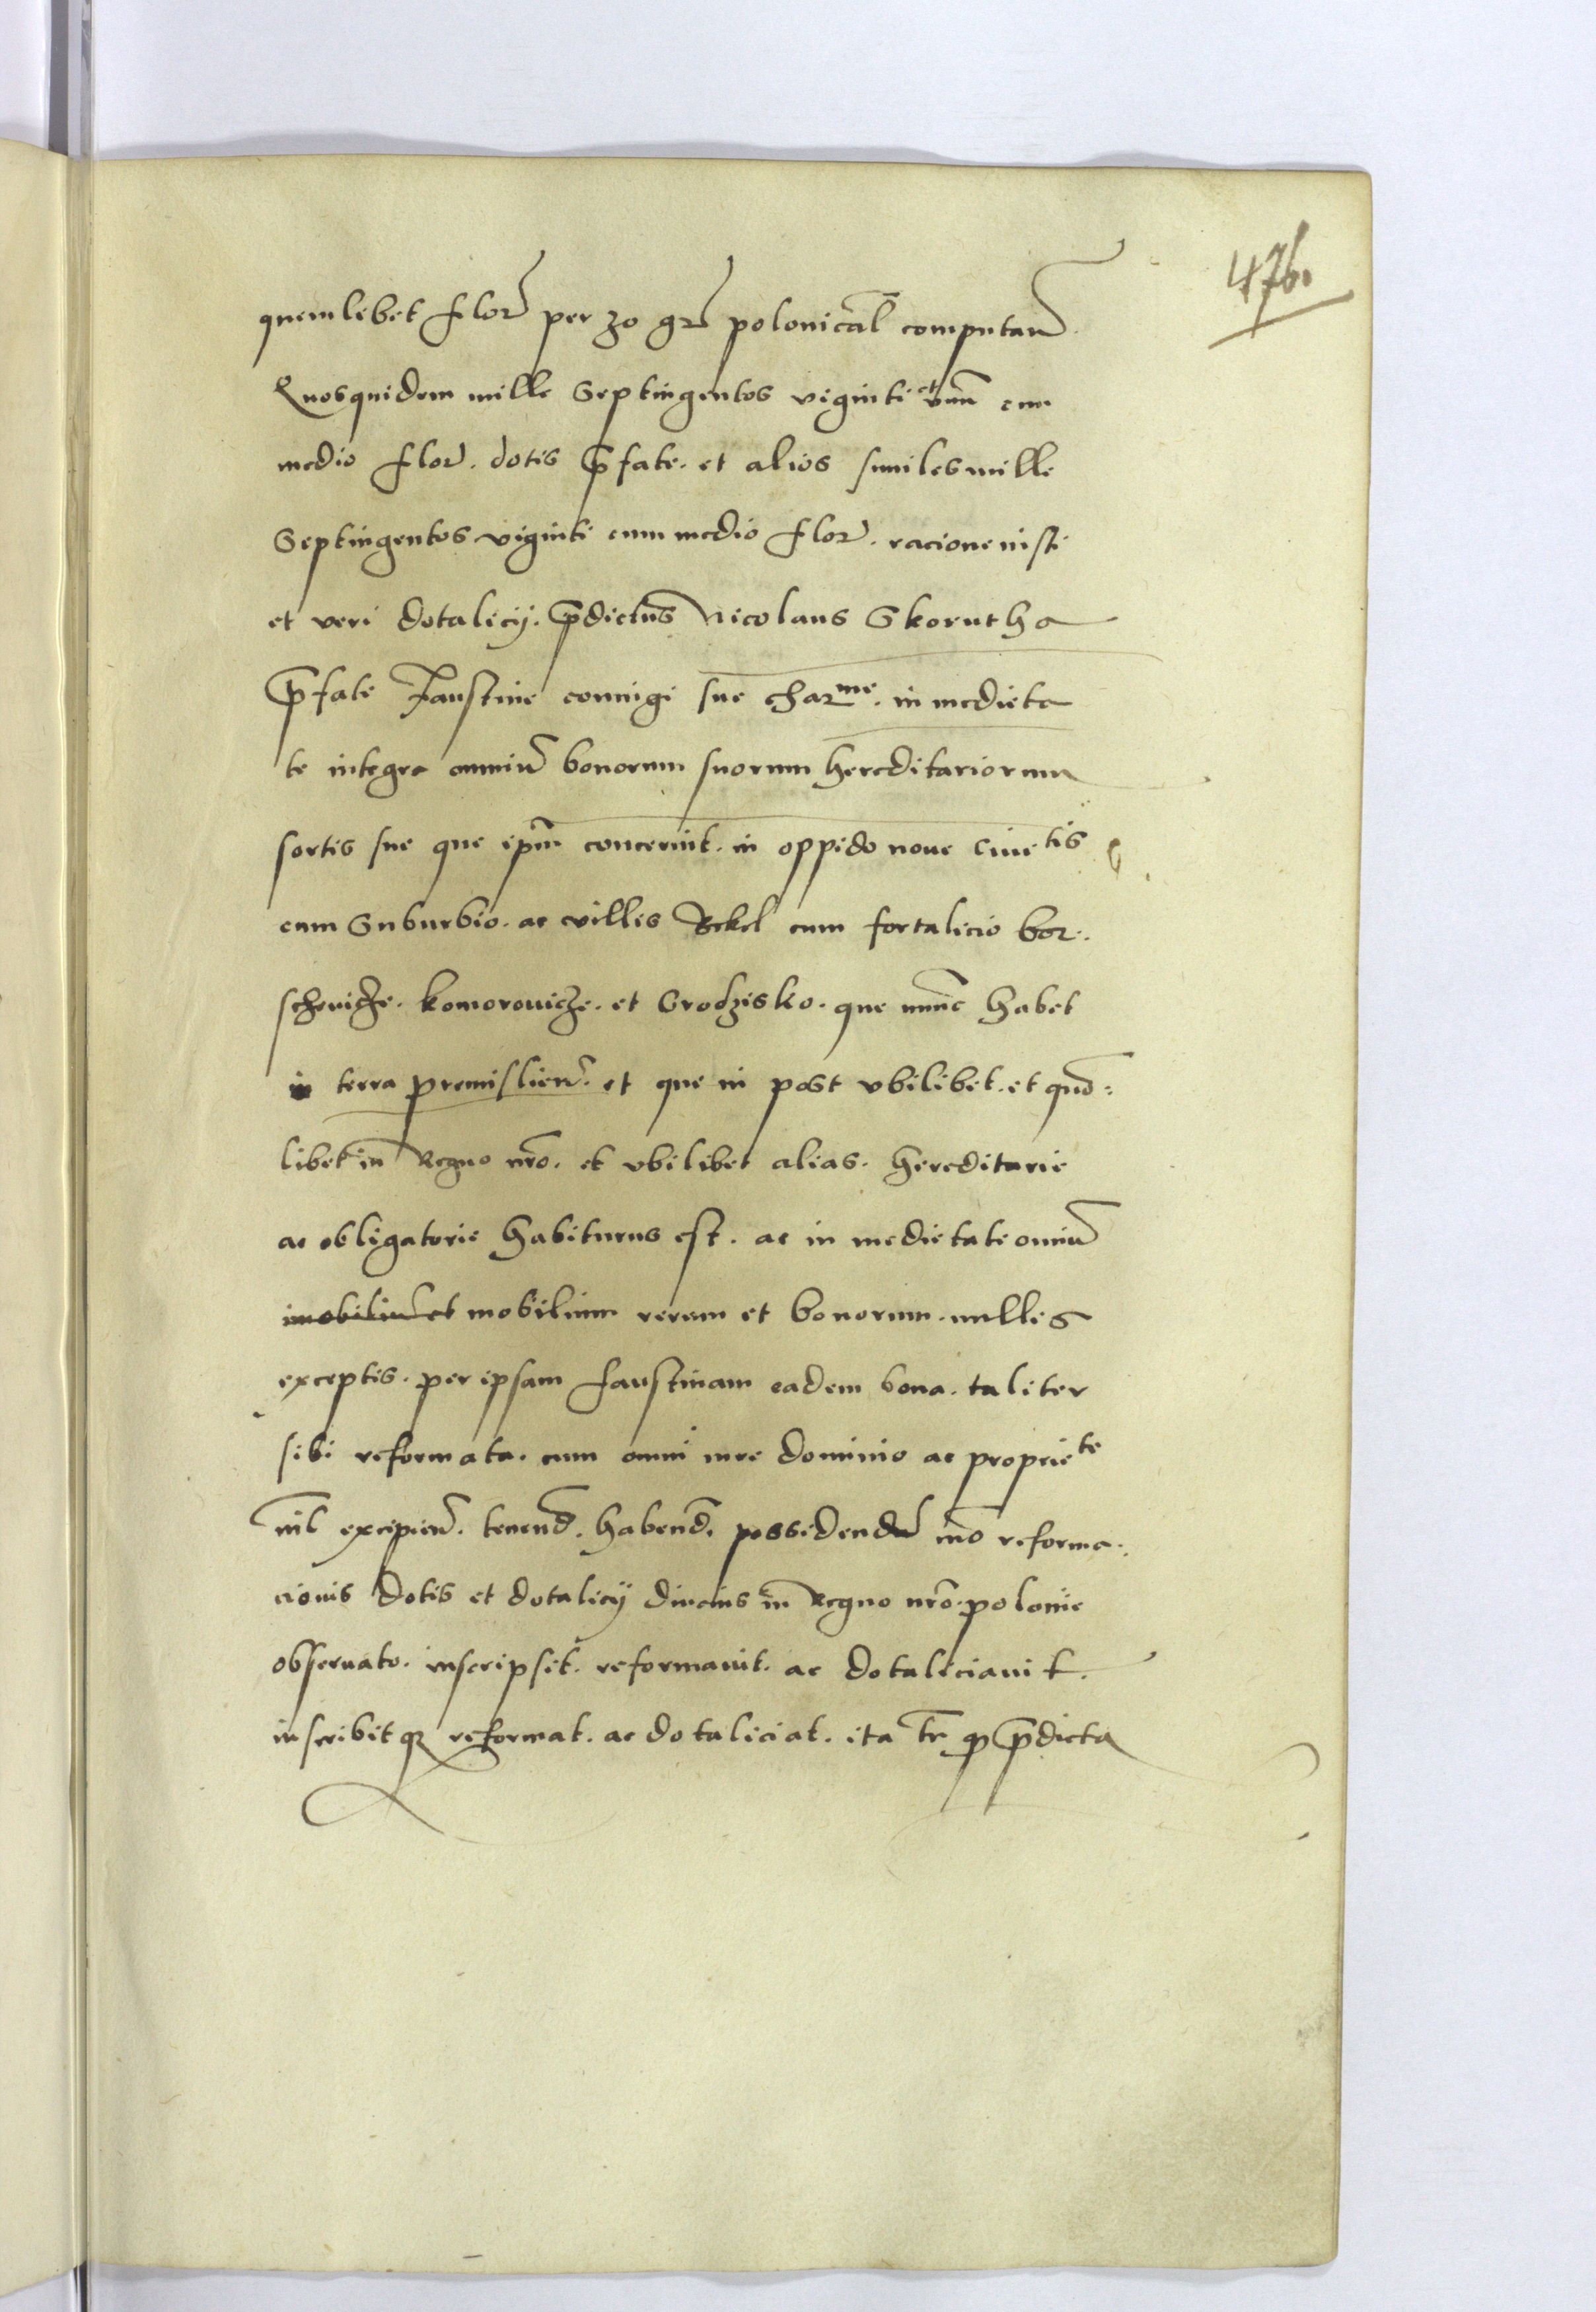 476.
quemlibet floꝝ per 30 gꝛ polonical̄ computan̄
Quosquidem mille Septingentos viginti et vnū cum
medio floꝝ. dotis p̄fate. et alios similes mille
Septingentos viginti cum medio floꝝ. racione iusti
et veri dotalicij. p̄dictus Nicolaus Skorutha
p̄fate Faustine coniugi sue charme. in medieta
te integra omniū bonorum suorum hereditariorum
sortis sue que ip̄m concernit. in oppido noue Ciuetis
cum Suburbio. ac villis cum fortalicio bor.
schouicze. komorouicze. et Grodzisko. que nunc habet
in terra premislien̄. et que in post vbilibet. et quō=
libet in Regno nr̄o. et vbilibet alias. hereditarie
ac obligatorie habiturus est. ac in medietate omniū
imobiliū et mobilium rerum et bonorum. nullis
exceptis. per ipsam faustinam eadem bona. taliter
sibi reformata. cum omni iure dominio ac propriete
nil excipien̄. tenend̄. habend̄. possidendū mō reforma.
cionis dotis et dotalicij diucius in Regno nr̄o. polonie
obseruato. inscripsit. reformauit. ac dotaliciauit.
inscribitqꝫ reformat. ac dotaliciat. ita tn̄ ꝙ p̄dicta